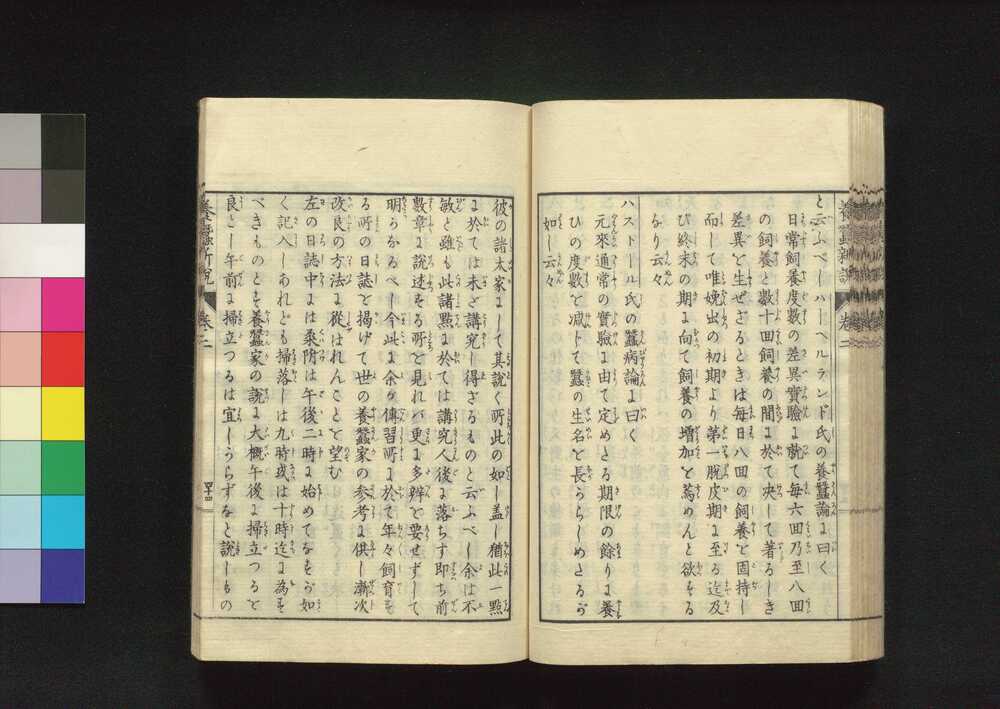 と云ふべしハーベルランド氏の養蠶論に曰く
日常飼養度數の差異實驗に就て毎六回乃至八回
の飼養と數十回飼養の間に於て决して著るしき
差異を生ぜざるときは毎日八回の飼養を固持し
而して唯娩虫の初期より第一脱皮期に至る迄及
び終末の期に向て飼養の増加を勗めんと欲する
なり云々
ハストール氏の蠶病論に曰く
元來通常の實驗に由て定めたる期限の餘りに養
ひの度數を减じて蠶の生名を長からしめざるが
如し云々
彼の諸太家にして其說く所此の如し盖し猶此一點
に於ては未だ講究し得ざるものと云ふべし余は不
敏と雖も此諸點に於ては講究人後に落ちす即ち前
數章に說述する所を見れば更に多辨を要せずして
明らかなるべし今此に余が傳習所に於て年々飼育す
る所の日誌を揭げて世の養蠶家の参考に供し漸次
改良の方法に從はれんことを望む
左の日誌中には桑附は午後二時に始めてなすが如
く記入しあれども掃落しは九時或は十時迄に為す
べきものとす養蠶家の說に大概午後に掃立つるを
良とし午前に掃立つるは宜しからずなど說しもの
養蠶新說 卷二
四十四